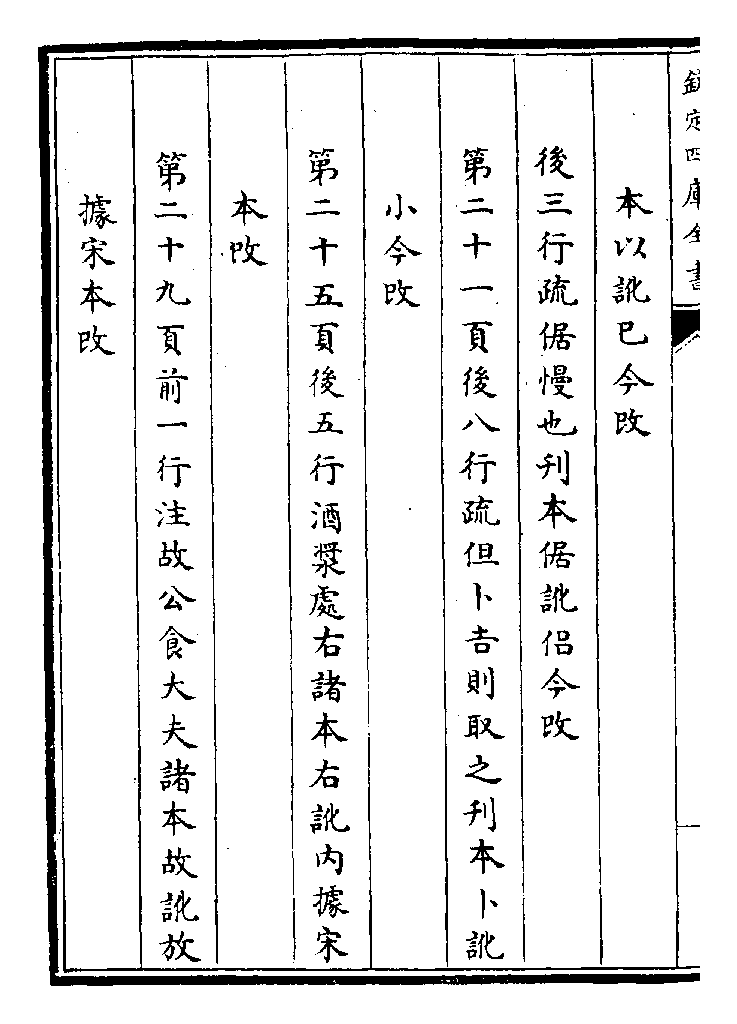 欽定四庫全書
本以訛巳今改
後三行疏倨慢也刋本倨訛侣今改
第二十一頁後八行疏但卜吉則取之刋本卜訛
小今改
第二十五頁後五行酒漿處右諸本右訛内據宋
本改
第二十九頁前一行注故公食大夫諸本故訛放
據宋本改